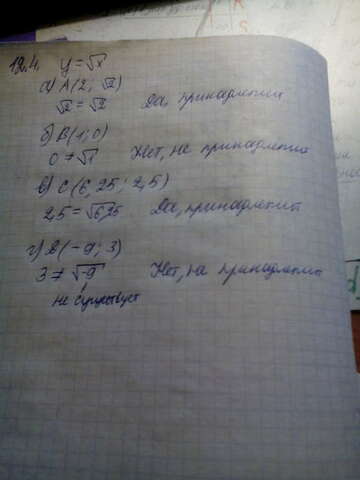 12.4. y = √x
а) A(2; √2)
√2 = √2 Да, принадлежит
б) B(1; 0)
0 ≠ √1 Нет, не принадлежит
в) C(6,25; 2,5)
2,5 = √6,25 Да, принадлежит
г) D(-9; 3)
3 ≠ √-9 Нет, не принадлежит
не существует